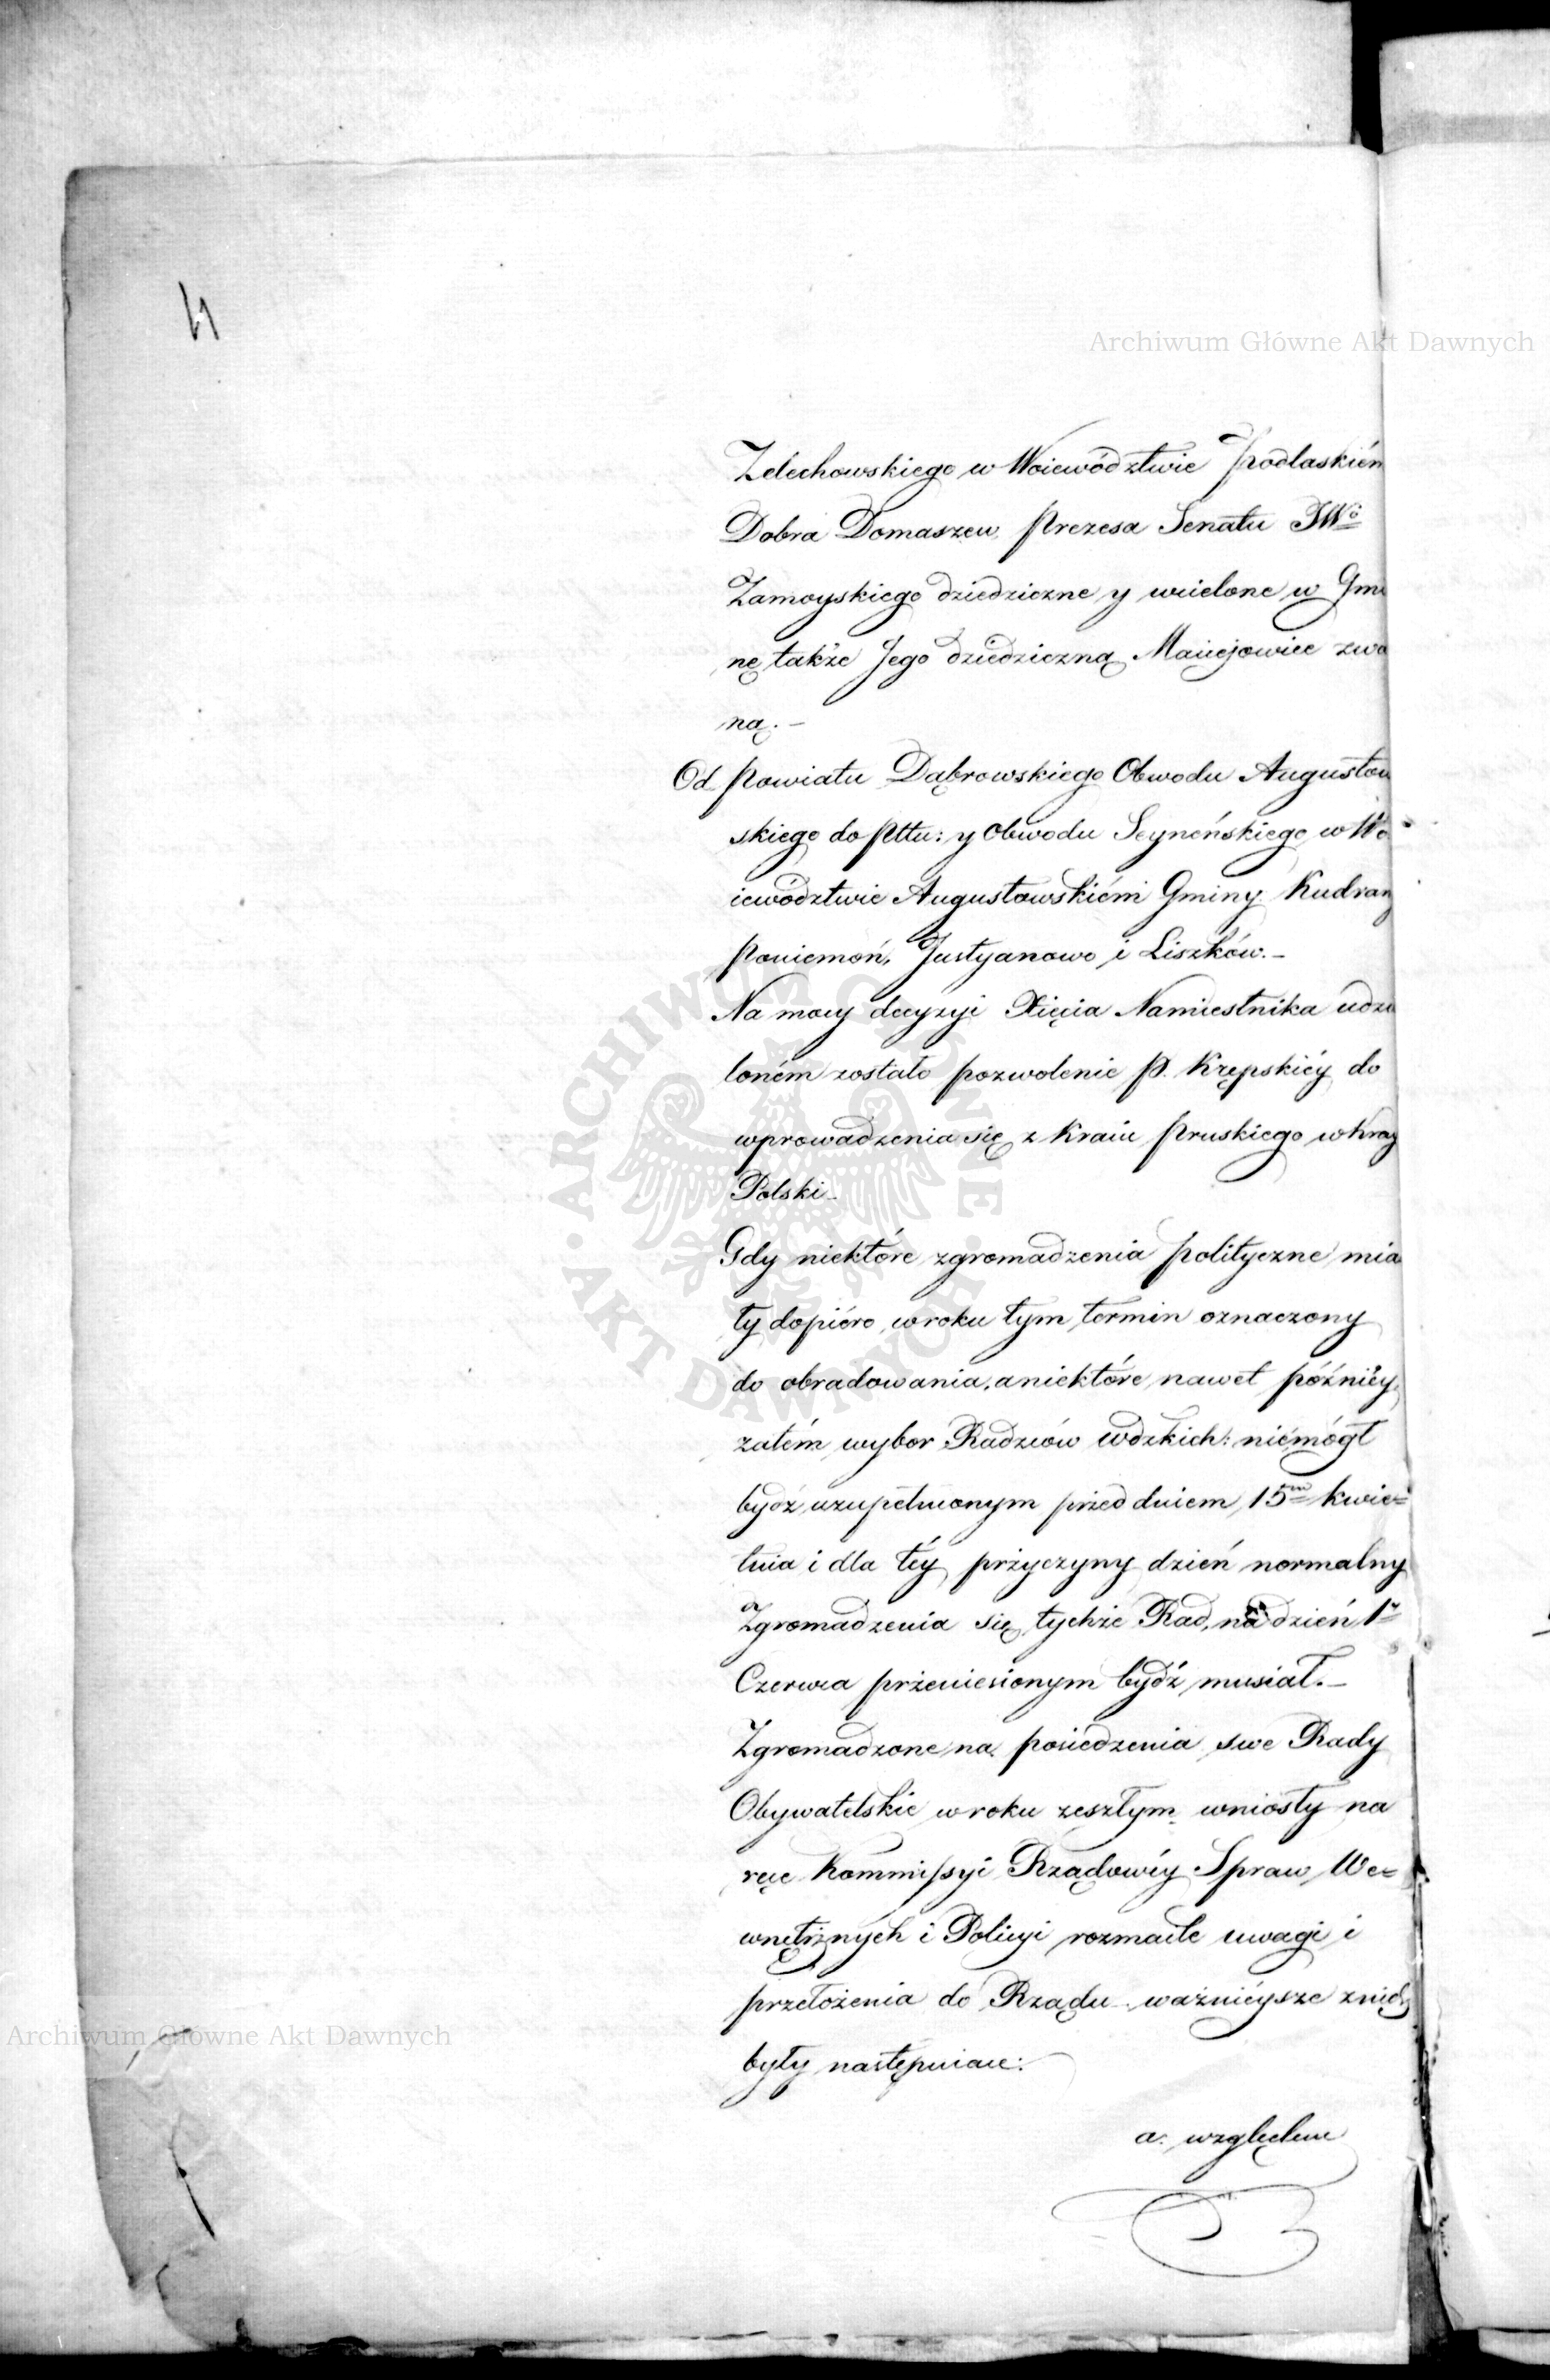 4
Archiwum Główne Akt Dawnych
Zelechowskiego w Woiewództwie Podlaskiém
Dobra Domaszew Prezesa Senatu JWo
Zamoyskiego dziedziczne y wcielone w Gmi
nę także Jego dziedziczną Maciejowice zwa
ną. –
Od Powiatu Dąbrowskiego Obwodu Augustow
skiego do Pttu: y Obwodu Seyneńskiego w Wo
iewództwie Augustowskiém Gminy Kudrany
Poniemoń, Justyanowo i Liszków. –
Na mocy decyzyi Xięcia Namiestnika udzie
loném zostało pozwolenie P. Krępskiéy do
wprowadzenia się z Kraiu Pruskiego w Kray
Polski –
Gdy niektóre zgromadzenia polityczne mia
ły dopiéro w roku tym termin oznaczony
do obradowania, a niektóre nawet późniéy,
zatém wybor Radzców wdzkich: niemógł
bydź uzupełnionym przed dniem 15m Kwie=
tnia i dla téy przyczyny dzień normalny
Zgromadzenia się tychże Rad, na dzień 1o
Czerwca przeniesionym bydź musiał. –
Zgromadzone na posiedzenia swe Rady
Obywatelskie w roku zeszłym wniosły na
ręce Kommissyi Rządowéy Spraw We=
wnętrznych i Policyi rozmaite uwagi i
przełożenia do Rządu – ważniéysze z nich
były następuiące:
a. względem
ARCHIWUM GŁÓWNE AKT DAWNYCH
Archiwum Główne Akt Dawnych